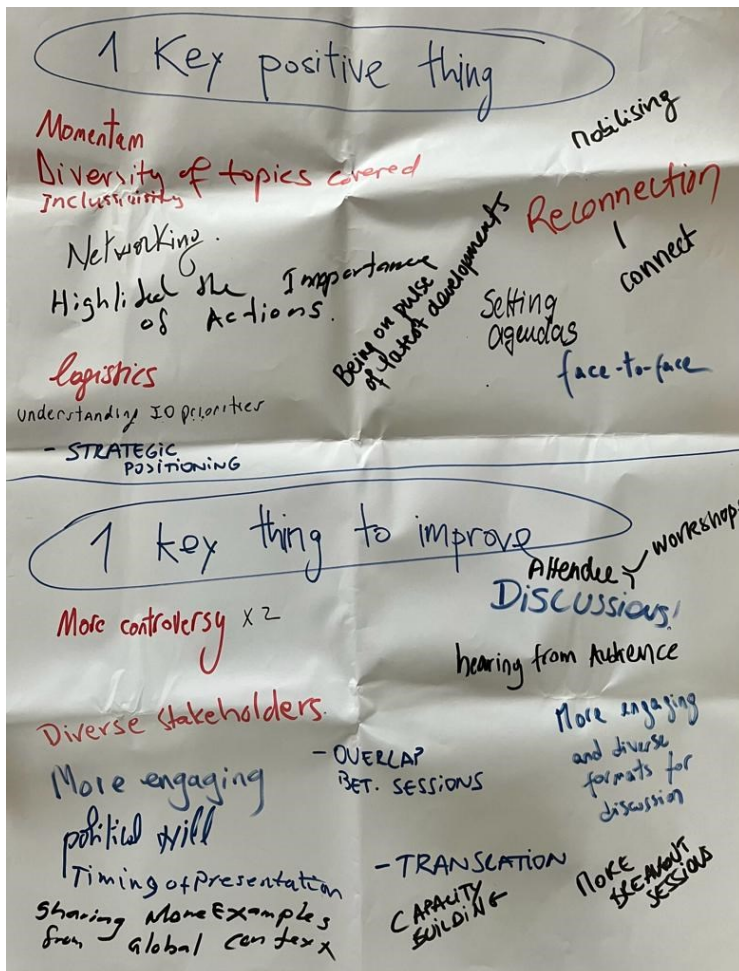 1 Key positive thing
Momentam
Diversity of topics covered
Inclussivisity
Networking.
Highlited the Importance
of Actions.
logistics
understanding IO priorities
- STRATEGIC
POSITIONING
Mobilising
Reconnection
connect
Being on pulse
of latest developments
Setting
agendas
face-to-face
1 key thing to improve
More controversy x 2
Attendee
workshops
DISCUSSIONS!
hearing from Audience
Diverse stakeholders.
More engaging
political will
Timing of Presentation
Sharing More Examples
from global contexx
- OVERLAP
BET. SESSIONS
- TRANSLATION
CAPACITY
BUILDING
More engaging
and diverse
formats for
discussion
MORE
BREAKOUT
SESSIONS